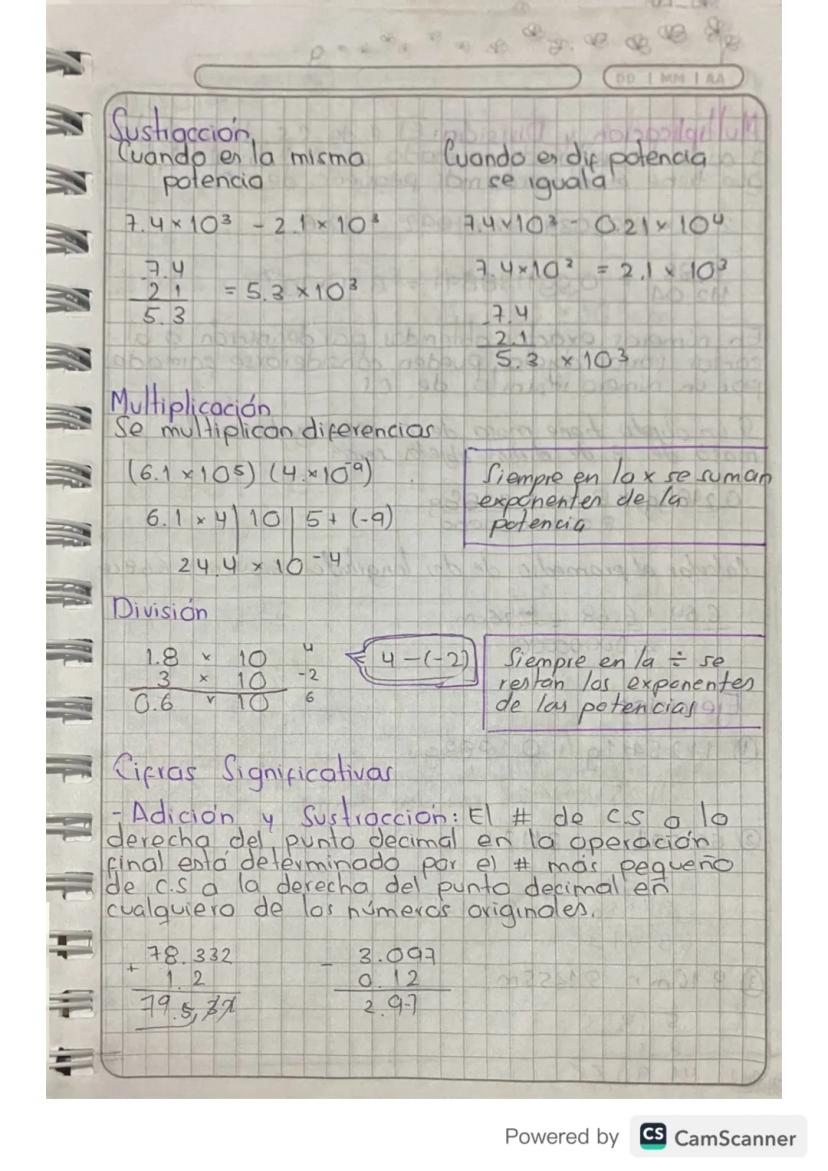 DD | MM | AA
Sustracción
Cuando es la misma
potencia
7.4 × 10³ - 2.1 × 10³
7.4
2 1
5.3
= 5.3 × 10³
Cuando es dif potencia
se iguala
7.4 × 10³ - 0.21 × 10⁴
7.4 × 10³ = 2.1 × 10³
7.4
2.1
5.3 × 10³
Multiplicación
Se multiplican diferencias
(6.1 × 10⁵) (4. × 10⁻⁹)
6.1 × 4 | 10 | 5 + (-9)
24.4 × 10⁻⁴
Siempre en la x se suman
exponentes de la
potencia
División
1.8 × 10 ⁴
3 × 10 ⁻²
0.6 × 10 ⁶
4 - (-2)
Siempre en la ÷ se
restan los exponentes
de las potencias
Cifras Significativas
- Adición y Sustracción: El # de CS a la
derecha del punto decimal en la operación
final está determinado por el # más pequeño
de C.S a la derecha del punto decimal en
cualquiera de los números originales.
78.332
+ 1.2
79.5,32
- 3.097
0.12
2.97
Powered by CS CamScanner